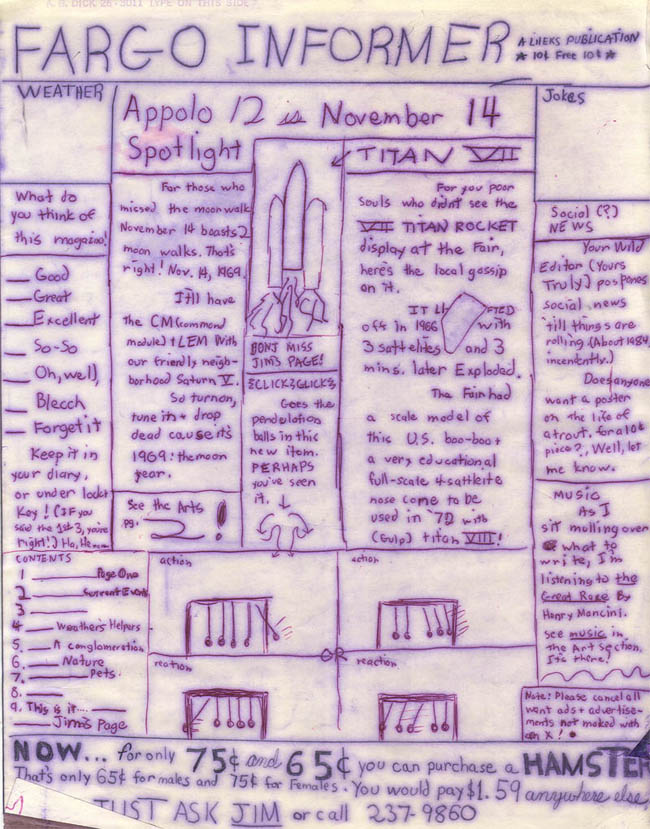 A. B. DICK 26-3011 TYPE ON THIS SIDE
FARGO INFORMER
A LHEKS PUBLICATION
★ 10¢ Free 10¢ ★
WEATHER
What do
you think of
this magazine!
Good
Great
Excellent
So-So
Oh, well,
Blecch
Forget it
Keep it in
your diary,
or under lock +
Key! (If you
said the 1st 3, you're
right!) Ha, He
Appolo 12 is November 14
Spotlight
For those who
missed the moonwalk
November 14 boasts 2
moon walks. That's
right! Nov. 14, 1969.
It'll have
The CM (command
module) + LEM With
our friendly neigh-
borhood Saturn V.
So turnon,
tune in + drop
dead cause it's
1969: the moon
year.
See the Arts
pg. 2!
DONT MISS
JIM'S PAGE!
CLICK CLICK
Goes the
pendulation
balls in this
new item.
PERHAPS
you've seen
it.
TITAN VII
For you poor
souls who didn't see the
VII TITAN ROCKET
display at the Fair,
here's the local gossip
on it.
IT LI FTED
off in 1966 with
3 sattelites and 3
mins. later Exploded.
The Fair had
a scale model of
this U.S. boo-boo +
a very educational
full-scale 4 sattleite
nose come to be
used in '70 with
(Gulp) titan VIII!
Jokes
Social (?)
NEWS
Your Wild
Editor (Yours
Truly) postpones
social news
'till things are
rolling. (About 1984,
incendently.)
Does anyone
want a poster
on the life of
a trout, for a 10¢
piece?, Well, let
me know.
MUSIC
As I
sit mulling over
what to
write, I'm
listening to the
Great Race By
Henry Mancini.
see music in
The Art Section.
It's there!
Note: Please cancel all
want ads + advertise-
ments not maked with
an X!
CONTENTS
1 Page One
2 Current Events
3
4 Weather's Helpers
5. A conglomeration
6. Nature
7. Pets.
8.
9. This is it....
Jim's Page
action
action
OR
reaction
reaction
NOW... for only 75¢ and 65¢ you can purchase a HAMSTER
That's only 65¢ for males and 75¢ for Females. You would pay $1.59 anywhere else,
JUST ASK JIM or call 237-9860